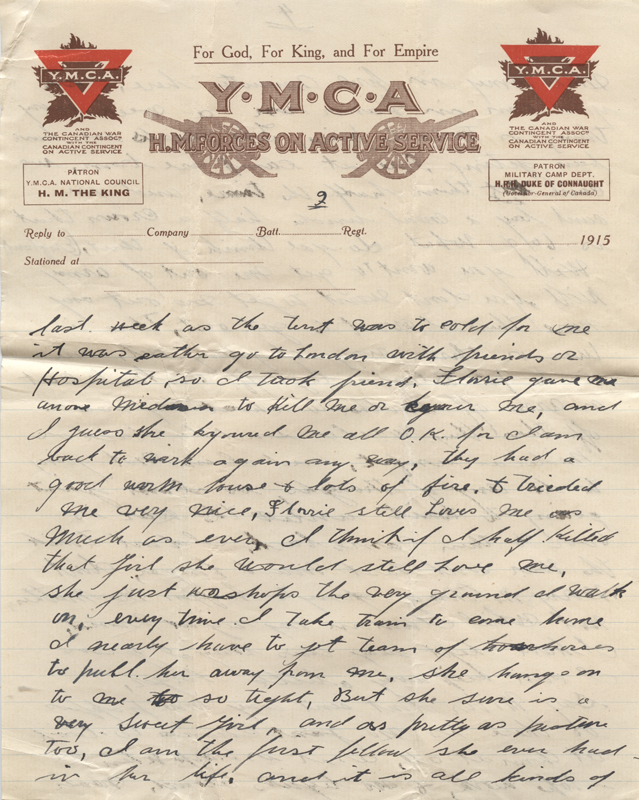 For God, For King, and For Empire
Y·M·C·A
H.M. FORCES ON ACTIVE SERVICE
Y.M.C.A.
AND
THE CANADIAN WAR
CONTINGENT ASSOCN
WITH THE
CANADIAN CONTINGENT
ON ACTIVE SERVICE
PATRON
Y.M.C.A. NATIONAL COUNCIL
H. M. THE KING
Y.M.C.A.
AND
THE CANADIAN WAR
CONTINGENT ASSOCN
WITH THE
CANADIAN CONTINGENT
ON ACTIVE SERVICE
PATRON
MILITARY CAMP DEPT.
H.R.H. DUKE OF CONNAUGHT
(Governor-General of Canada)
2
Reply to Company Batt. Regt.
1915
Stationed at
last week as the tent was to cold for me
it was eather go to London with friends or
Hospital, so I took friend, Florrie gave me
to Kill me or me, and
I guess she kyoured me all O.K. for I am
back to work again any way, they had a
good worm house & lots of fire, & trieded
me very nice, Florrie still Loves me as
much as ever, I think if I half Killed
that girl she would still love me,
she just worshops the very ground I walk
on, every time I take train to come home
I nearly have to jet team of horses
to pull her away from me, she hangs on
to me so tight, But she sure is a
very Sweet Girl, and as pretty as picture
Too, I am the first fellow she ever had
in her life, and it is all kinds of